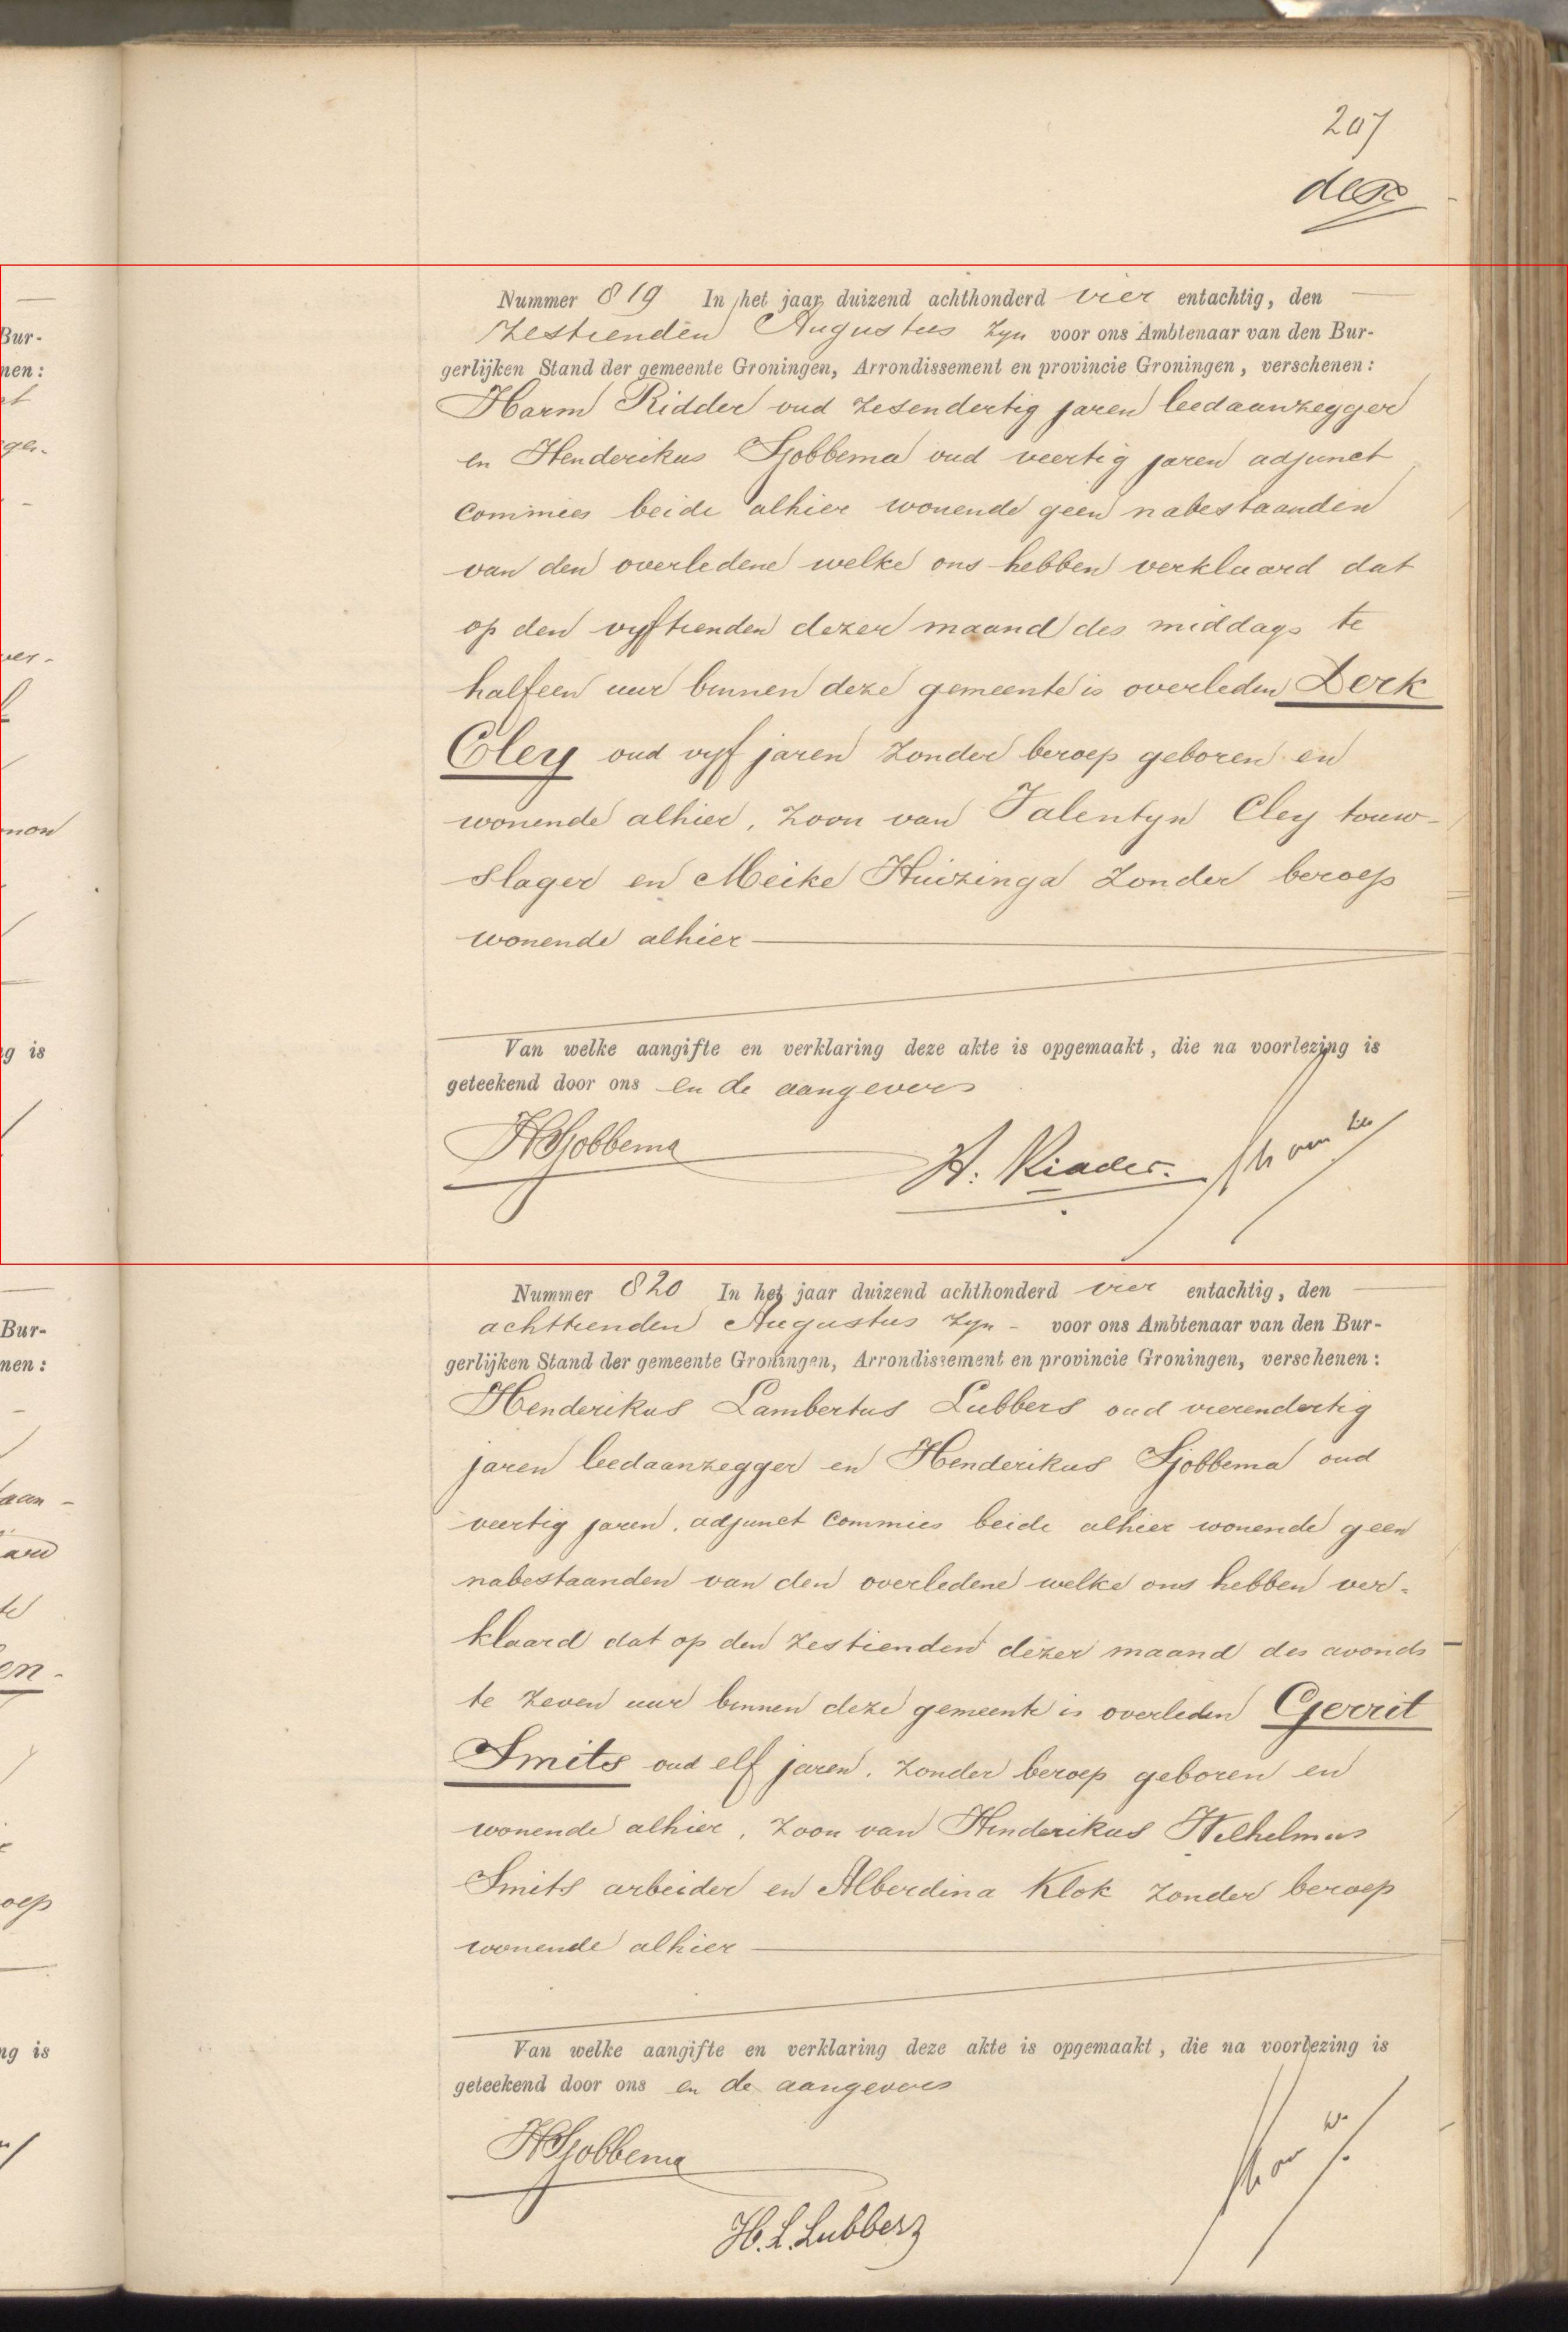 207
Nummer 819 In het jaar duizend achthonderd vier entachtig, den
zestienden Augustus zyn voor ons Ambtenaar van den Bur-
gerlijken Stand der gemeente Groningen, Arrondissement en provincie Groningen, verschenen:
Harm Ridder oud zesendertig jaren leedaanzegger
en Henderikus Sjobbema oud veertig jaren adjunct
commies beide alhier wonende geen nabestaanden
van den overledene welke ons hebben verklaard dat
op den vyftienden dezer maand des middags te
halfeen uur binnen deze gemeente is overleden Derk
Cley oud vyf jaren zonder beroep geboren en
wonende alhier, zoon van Valentyn Cley touw-
slager en Meike Huizinga zonder beroep
wonende alhier
Van welke aangifte en verklaring deze akte is opgemaakt, die na voorlezing is
geteekend door ons en de aangevers
HSjobbema
H. Ridder.
Nummer 820 In het jaar duizend achthonderd vier entachtig, den
achttienden Augustus zyn - voor ons Ambtenaar van den Bur-
gerlijken Stand der gemeente Groningen, Arrondissement en provincie Groningen, verschenen:
Henderikus Lambertus Lubbers oud vierendertig
jaren leedaanzegger en Henderikus Sjobbema oud
veertig jaren, adjunct commies beide alhier wonende geen
nabestaanden van den overledene welke ons hebben ver-
klaard dat op den zestienden dezer maand des avonds
te zeven uur binnen deze gemeente is overleden Gerrit
Smits oud elf jaren, zonder beroep geboren en
wonende alhier, zoon van Henderikus Wilhelmus
Smits arbeider en Alberdina Klok zonder beroep
wonende alhier
Van welke aangifte en verklaring deze akte is opgemaakt, die na voorlezing is
geteekend door ons en de aangevers
HSjobbema
H. L. Lubbers